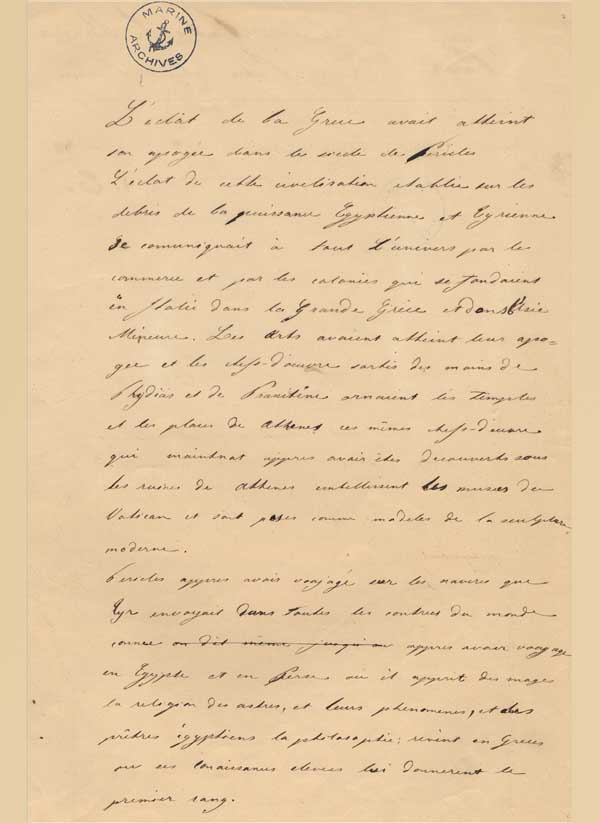 MARINE
ARCHIVES
L'éclat de la Grece avait atteint
son apogée dans le siecle de Péricles
L'éclat de cette civilisation etablie sur les
debris de la puissance Egyptienne et Tyrienne
se comuniquait à tout L'univers par le
commerce et par les colonies qui se fondaient
en Italie dans la Grande Gréce et dans l'Asie
Mineure. Les Arts avaient atteint leur apo=
gee et les chefs-d'oeuvre sortis des mains de
Phydias et de Praxitène ornaient les temples
et les places de Athenes ces mêmes chefs-d'oeuvre
qui maintnat appres avair étés decouverts sous
les ruines de Athènes embellissent les musees du
Vatican et sont poses comme modeles de la sculpture
moderne.
Pericles appres avais voyagé sur les navires que
Tyr envoyait dans toutes les contrees du monde
connu ou dit même jusqu'au appres avair voyage
en Egypte et en Perse ou il apprit des mages
la religion des astres, et leurs phenomenes, et des
prêtres égyptiens la philosophie; revint en Grece
ou ses conaissances elevees lui donnerent le
premier rang.